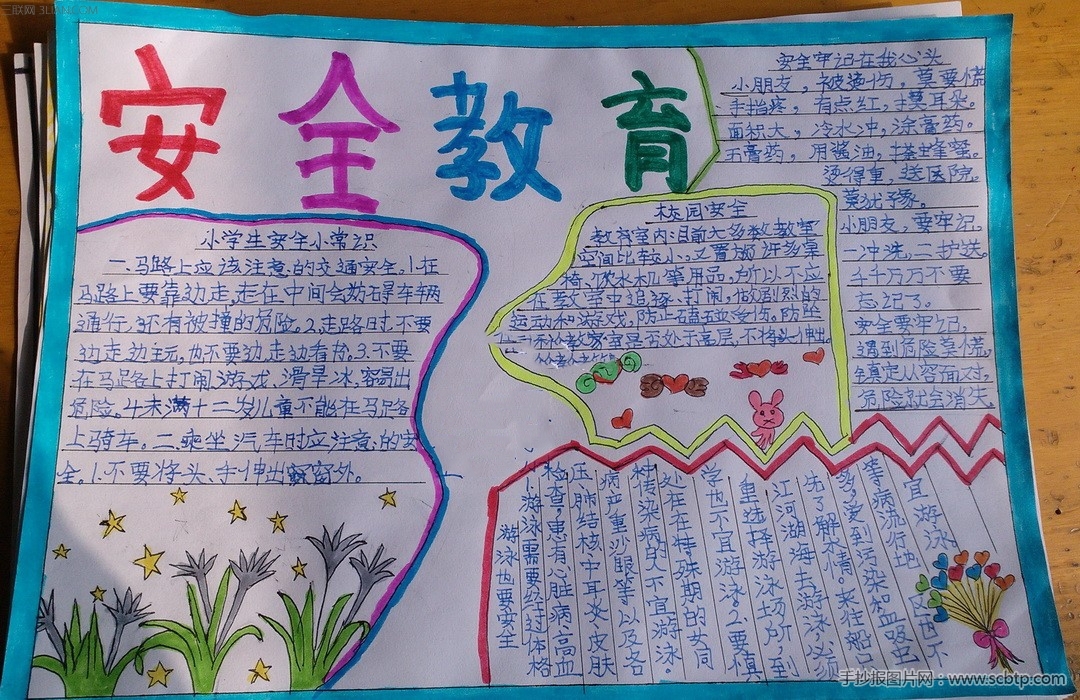 三联网 3LIAN.COM
安全教育
小学生安全小常识
一.马路上应该注意的交通安全.1.在
马路上要靠边走,走在中间会妨碍车辆
通行,还有被撞的危险。2.走路时不要
边走边玩,也不要边走边看书。3.不要
在马路上打闹、游戏、滑旱冰,容易出
危险。4.未满十二岁儿童不能在马路
上骑车。二.乘坐汽车时应注意的安
全。1.不要将头、手伸出窗外。
校园安全
教室内:目前大多数教室
空间比较小,又置放许多桌
椅、饮水机等用品,所以不应
在教室中追逐、打闹,做剧烈的
运动和游戏,防止磕碰受伤。防坠
教室是否处于高层,不将头伸出
安全牢记在我心头
小朋友,被烫伤,莫要慌
手指疼,有点红,摸耳朵。
面积大,冷水冲,涂膏药。
无膏药,用酱油,搽蜂蜜。
烫得重,送医院。
莫犹豫。
小朋友,要牢记,
一冲洗,二护扶。
千千万万不要
忘记了。
安全要牢记,
遇到危险莫慌,
镇定从容面对,
危险就会消失。
游泳也要安全
1.游泳需要经过体格
检查,患有心脏病、高血
压、肺结核、中耳炎、皮肤
病、严重沙眼等以及各
种传染病的人不宜游泳
处在特殊期的女同
学也不宜游泳。2.要慎
重选择游泳场所,到
江河湖海去游泳,必须
先了解水情。来往船
多,受到污染和血吸虫
等病流行地区也不
宜游泳
手抄报图片网:www.scbtp.com